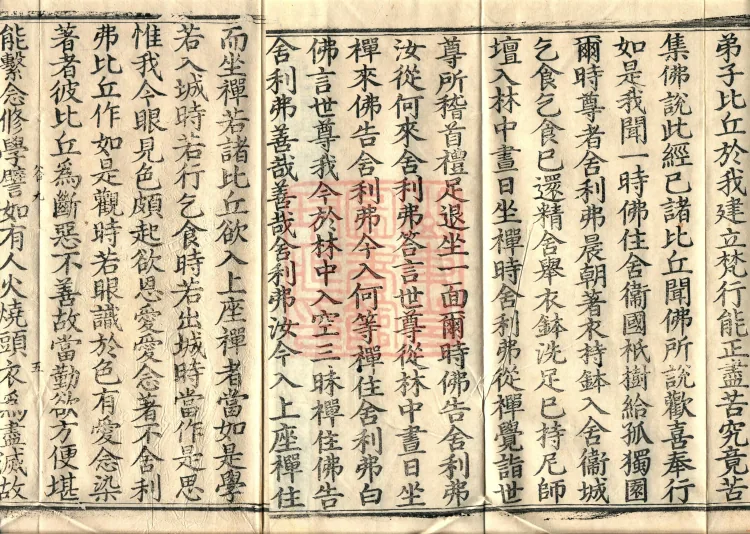 弟子比丘於我建立梵行能正盡苦究竟苦
集佛說此經已諸比丘聞佛所說歡喜奉行
如是我聞一時佛住舍衞國祇樹給孤獨園
爾時尊者舍利弗晨朝著衣持鉢入舍衞城
乞食乞食已還精舍舉衣鉢洗足已持尼師
壇入林中晝日坐禪時舍利弗從禪覺詣世
尊所稽首禮足退坐一面爾時佛告舍利弗
汝從何來舍利弗答言世尊從林中晝日坐
禪來佛告舍利弗今入何等禪住舍利弗白
佛言世尊我今於林中入空三昧禪住佛告
舍利弗善哉善哉舍利弗汝今入上座禪住
而坐禪若諸比丘欲入上座禪者當如是學
若入城時若行乞食時若出城時當作是思
惟我今眼見色頗起欲恩愛愛念著不舍利
弗比丘作如是觀時若眼識於色有愛念染
著者彼比丘爲斷惡不善故當勤欲方便堪
五
能繫念修學譬如有人火燒頭衣爲盡滅故